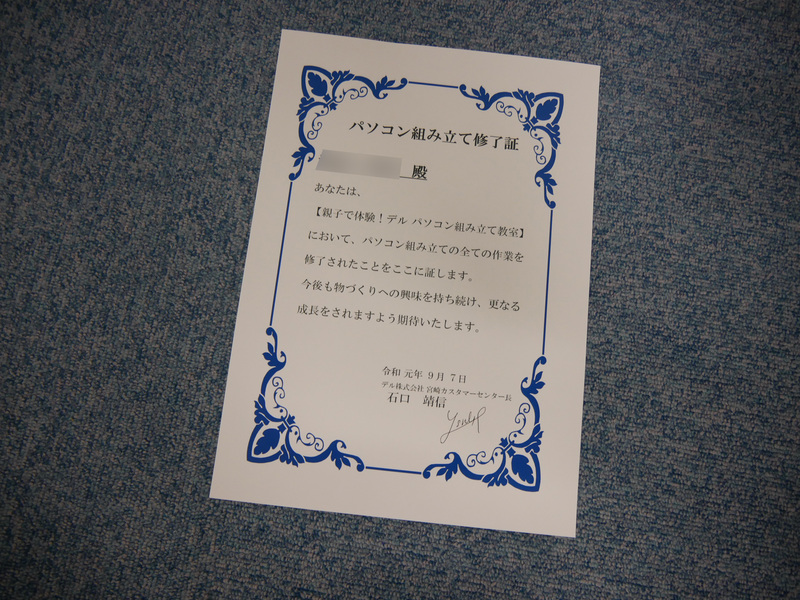 パソコン組み立て修了証
殿
あなたは、
【親子で体験！デル パソコン組み立て教室】
において、パソコン組み立ての全ての作業を
修了されたことをここに証します。
今後も物づくりへの興味を持ち続け、更なる
成長をされますよう期待いたします。
令和 元年 9月 7日
デル株式会社 宮崎カスタマーセンター長
石口 靖信